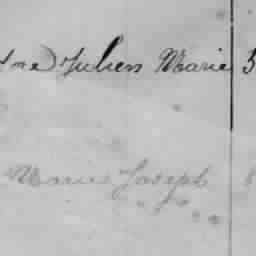 Julien Marie 3
Marie Joseph